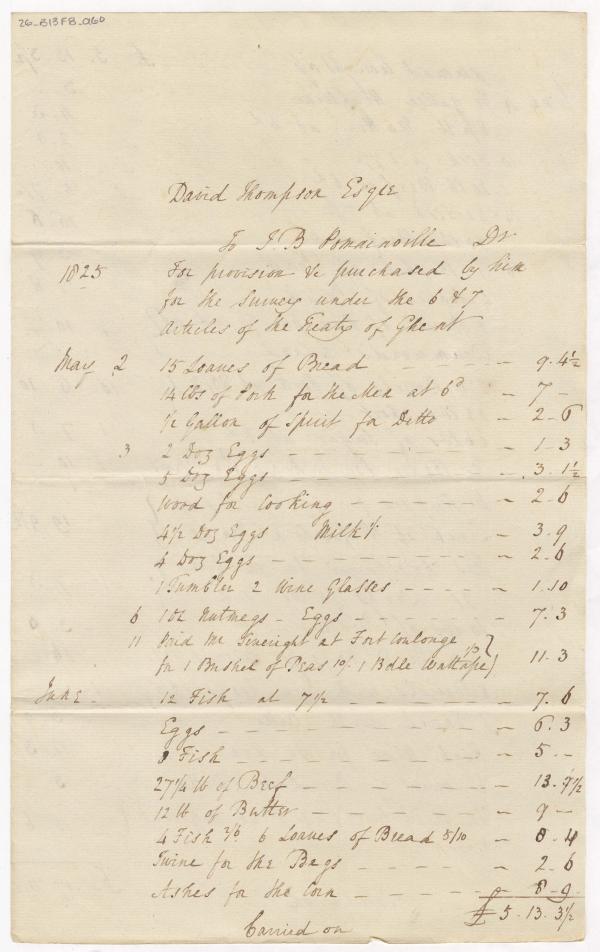 26-B13FB-060
David Thompson Esqre
To J. B Pomainville Dr
1825 For provision &c purchased by him
for the Survey under the 6 & 7
Articles of the Treaty of Ghent
May 2 15 Loaves of Bread - - - - 9. 4½
14 lbs of Pork for the Men at 6d - 7 -
½ Gallon of Spirit for Ditto - 2 - 6
3 2 Doz Eggs - - - - 1 - 3
5 Doz Eggs - - - - 3. 1½
Wood for Cooking - - - - 2 - 6
4½ Doz Eggs Milk 1/ - 3. 9
4 Doz Eggs - - - - 2. 6
1 Tumbler 2 Wine Glasses - - - - 1. 10
6 1 oz Nutmegs - Eggs - - - - 7. 3
11 Paid Mr at Fort Coulonge
for 1 Bushel of Peas 10/. 1 Bdle Wattape 1/3 } 11. 3
June - 12 Fish at 7½ - - - - 7. 6
Eggs - - - - 6. 3
8 Fish - - - - 5. -
27¼ lb of Beef - - - - 13. 7½
12 lb of Butter - - - - 9 -
4 Fish 2/6 6 Loaves of Bread 5/10 - 8. 4
Twine for the Bags - - - - 2. 6
Ashes for the Corn - - - - 8 - 9
£ 5. 13. 3½
Carried on